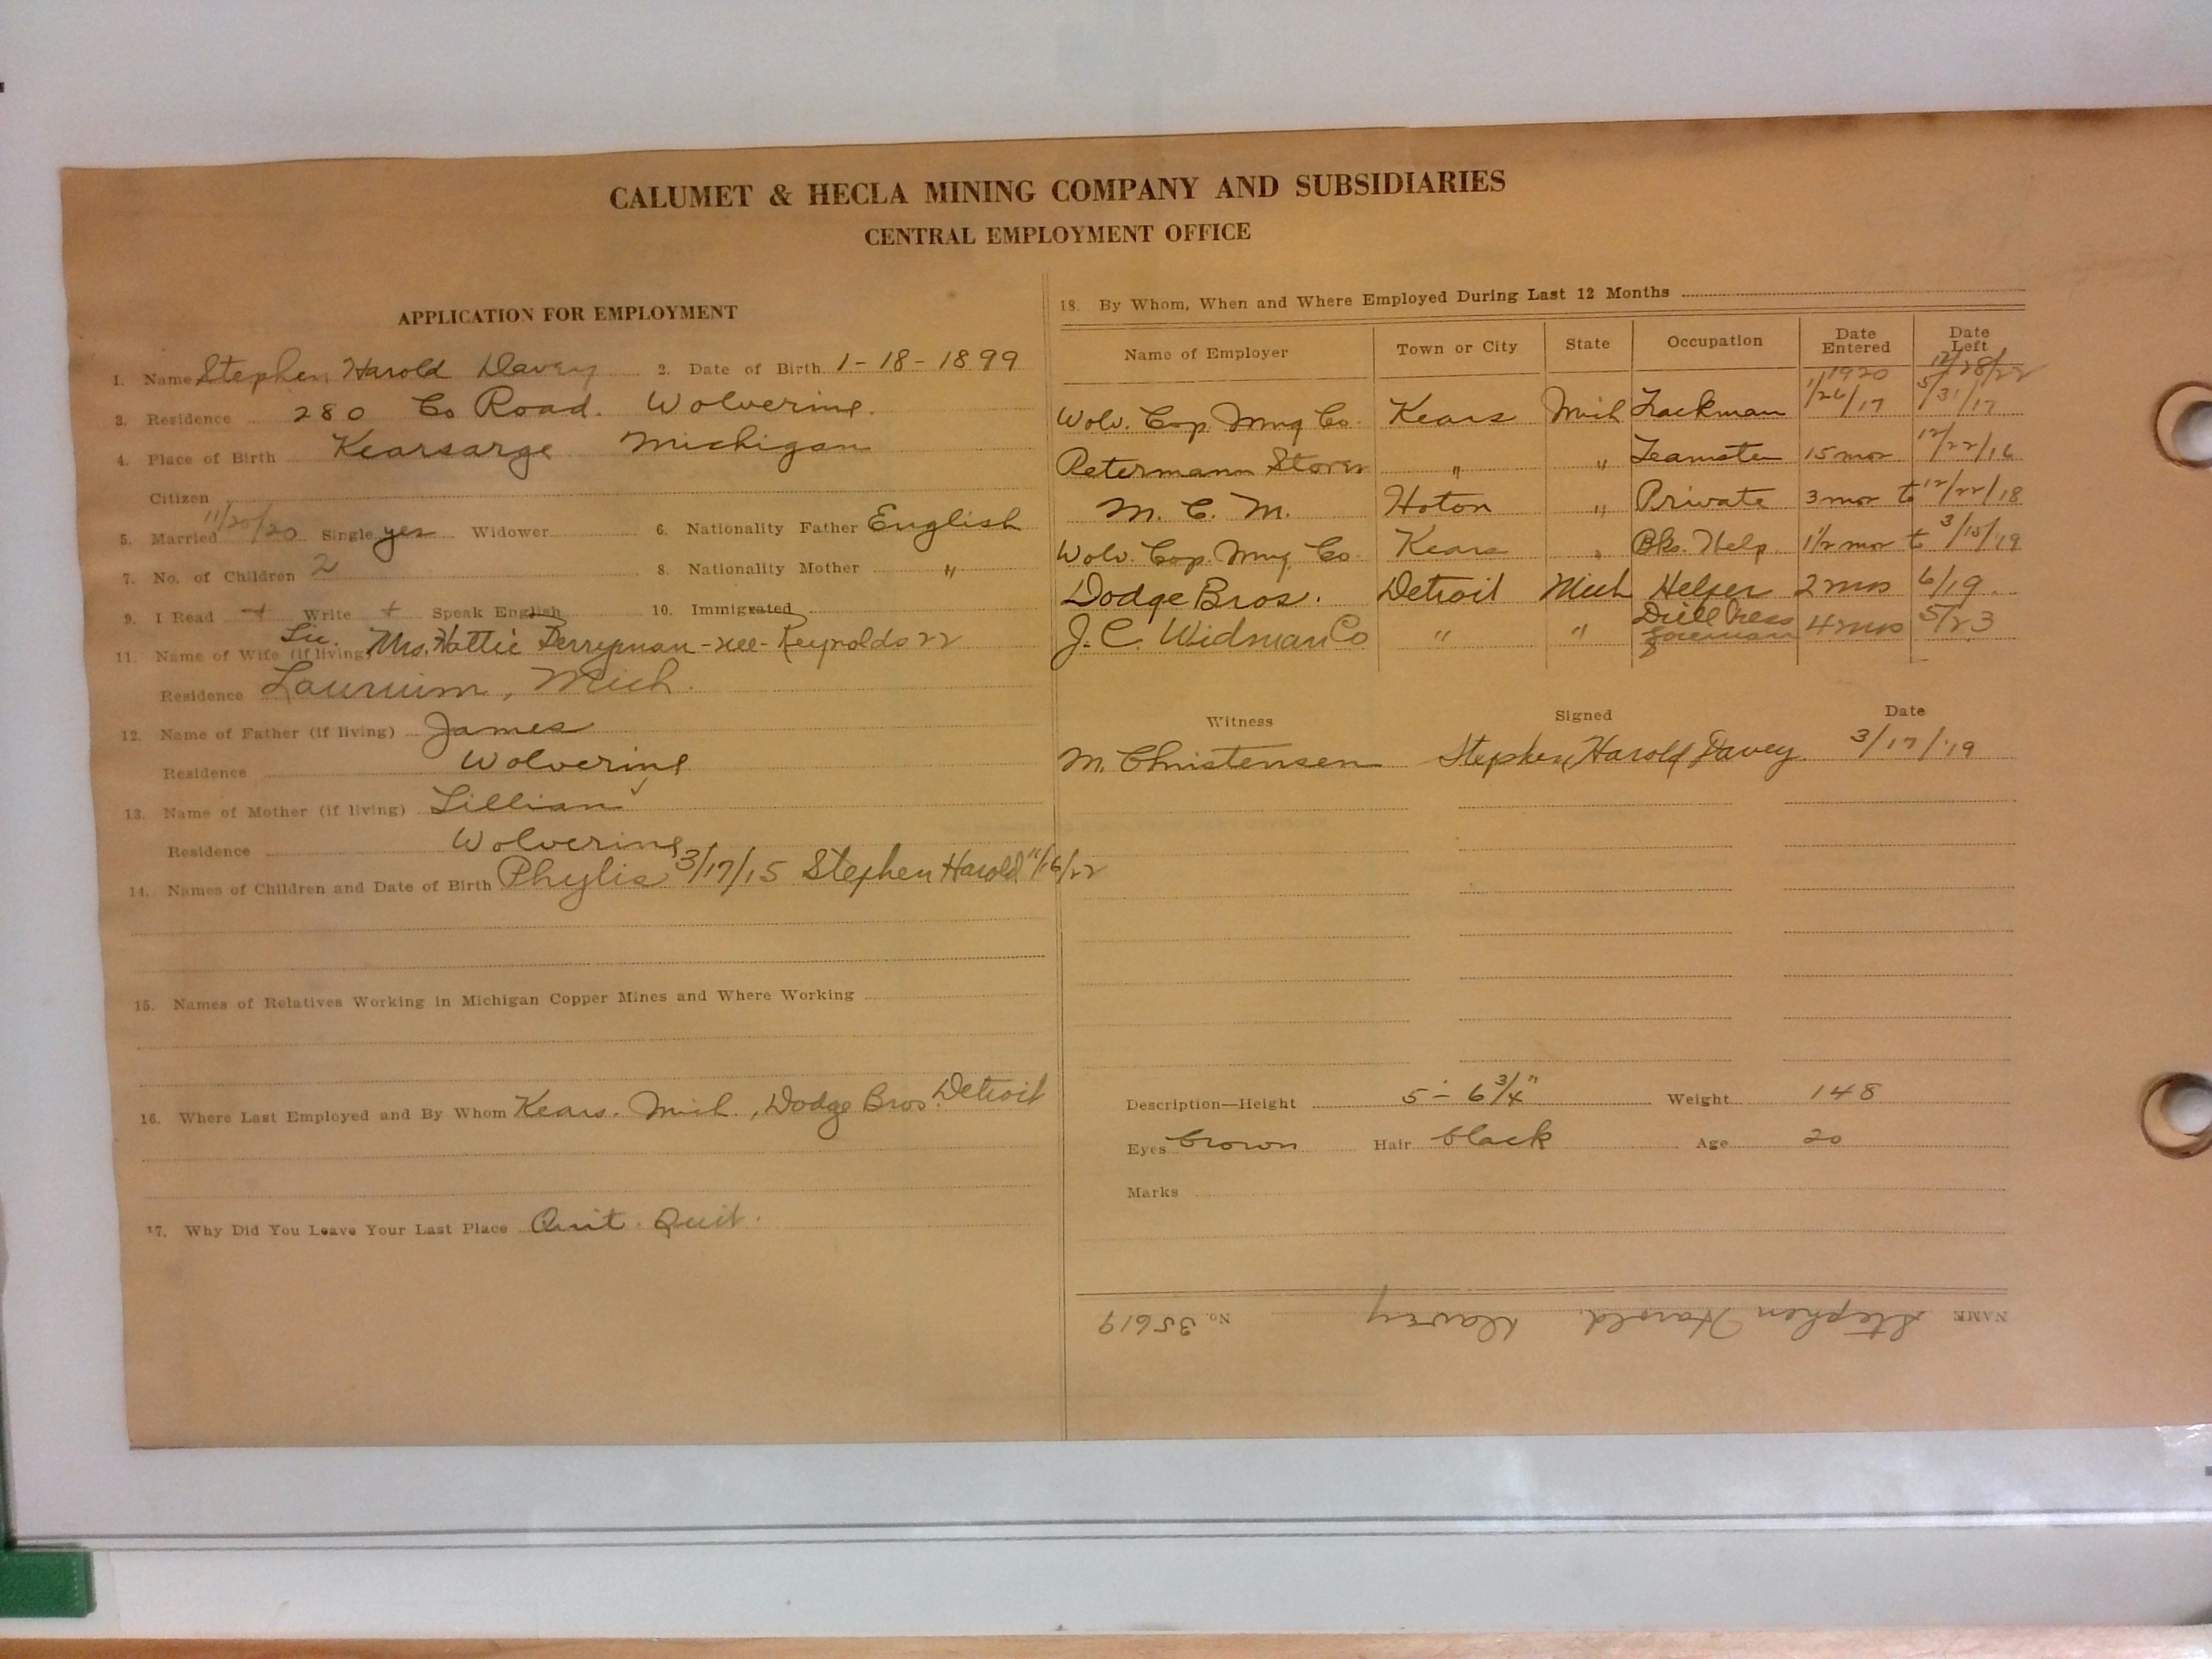 CALUMET & HECLA MINING COMPANY AND SUBSIDIARIES
CENTRAL EMPLOYMENT OFFICE
APPLICATION FOR EMPLOYMENT
1. Name Stephen Harold Davey 2. Date of Birth 1-18-1899
3. Residence 280 Co Road. Wolverine.
4. Place of Birth Kearsarge Michigan
Citizen
5. Married 11/20/20 Single yes Widower 6. Nationality Father English
7. No. of Children 2 8. Nationality Mother "
9. I Read + Write + Speak English 10. Immigrated
Lic.
11. Name of Wife (if living) Mrs. Hattie Berryman-nee-Reynolds 22
Residence Laurium, Mich.
12. Name of Father (if living) James
Residence Wolverine
13. Name of Mother (if living) Lillian
Residence Wolverine
14. Names of Children and Date of Birth Phylis 3/17/15 Stephen Harold 11/16/22
15. Names of Relatives Working in Michigan Copper Mines and Where Working
16. Where Last Employed and By Whom Kears. Mich, Dodge Bros. Detroit
17. Why Did You Leave Your Last Place Quit. Quit.
18. By Whom, When and Where Employed During Last 12 Months
Name of Employer Town or City State Occupation Date Entered Date Left
1/1920 12/28/22
Wolv. Cop. Mng Co. Kears Mich Trackman 1/26/17 5/31/17
Petermann Stores " " Teamster 15 mos 12/22/16
M. C. M. Hoton " Private 3 mos to 12/22/18
Wolv. Cop. Mng. Co. Kears " Bks. Help. 1 1/2 mos to 3/15/19
Dodge Bros. Detroit Mich Helper 2 mos 6/19.
J. C. Widman Co " " Drill Press foreman 4 mos 5/23
Witness Signed Date
M. Christensen Stephen Harold Davey. 3/17/'19
Description—Height 5 - 6 3/4" Weight 148
Eyes brown Hair black Age 20
Marks
NAME Stephen Harold. Davey No. 35619